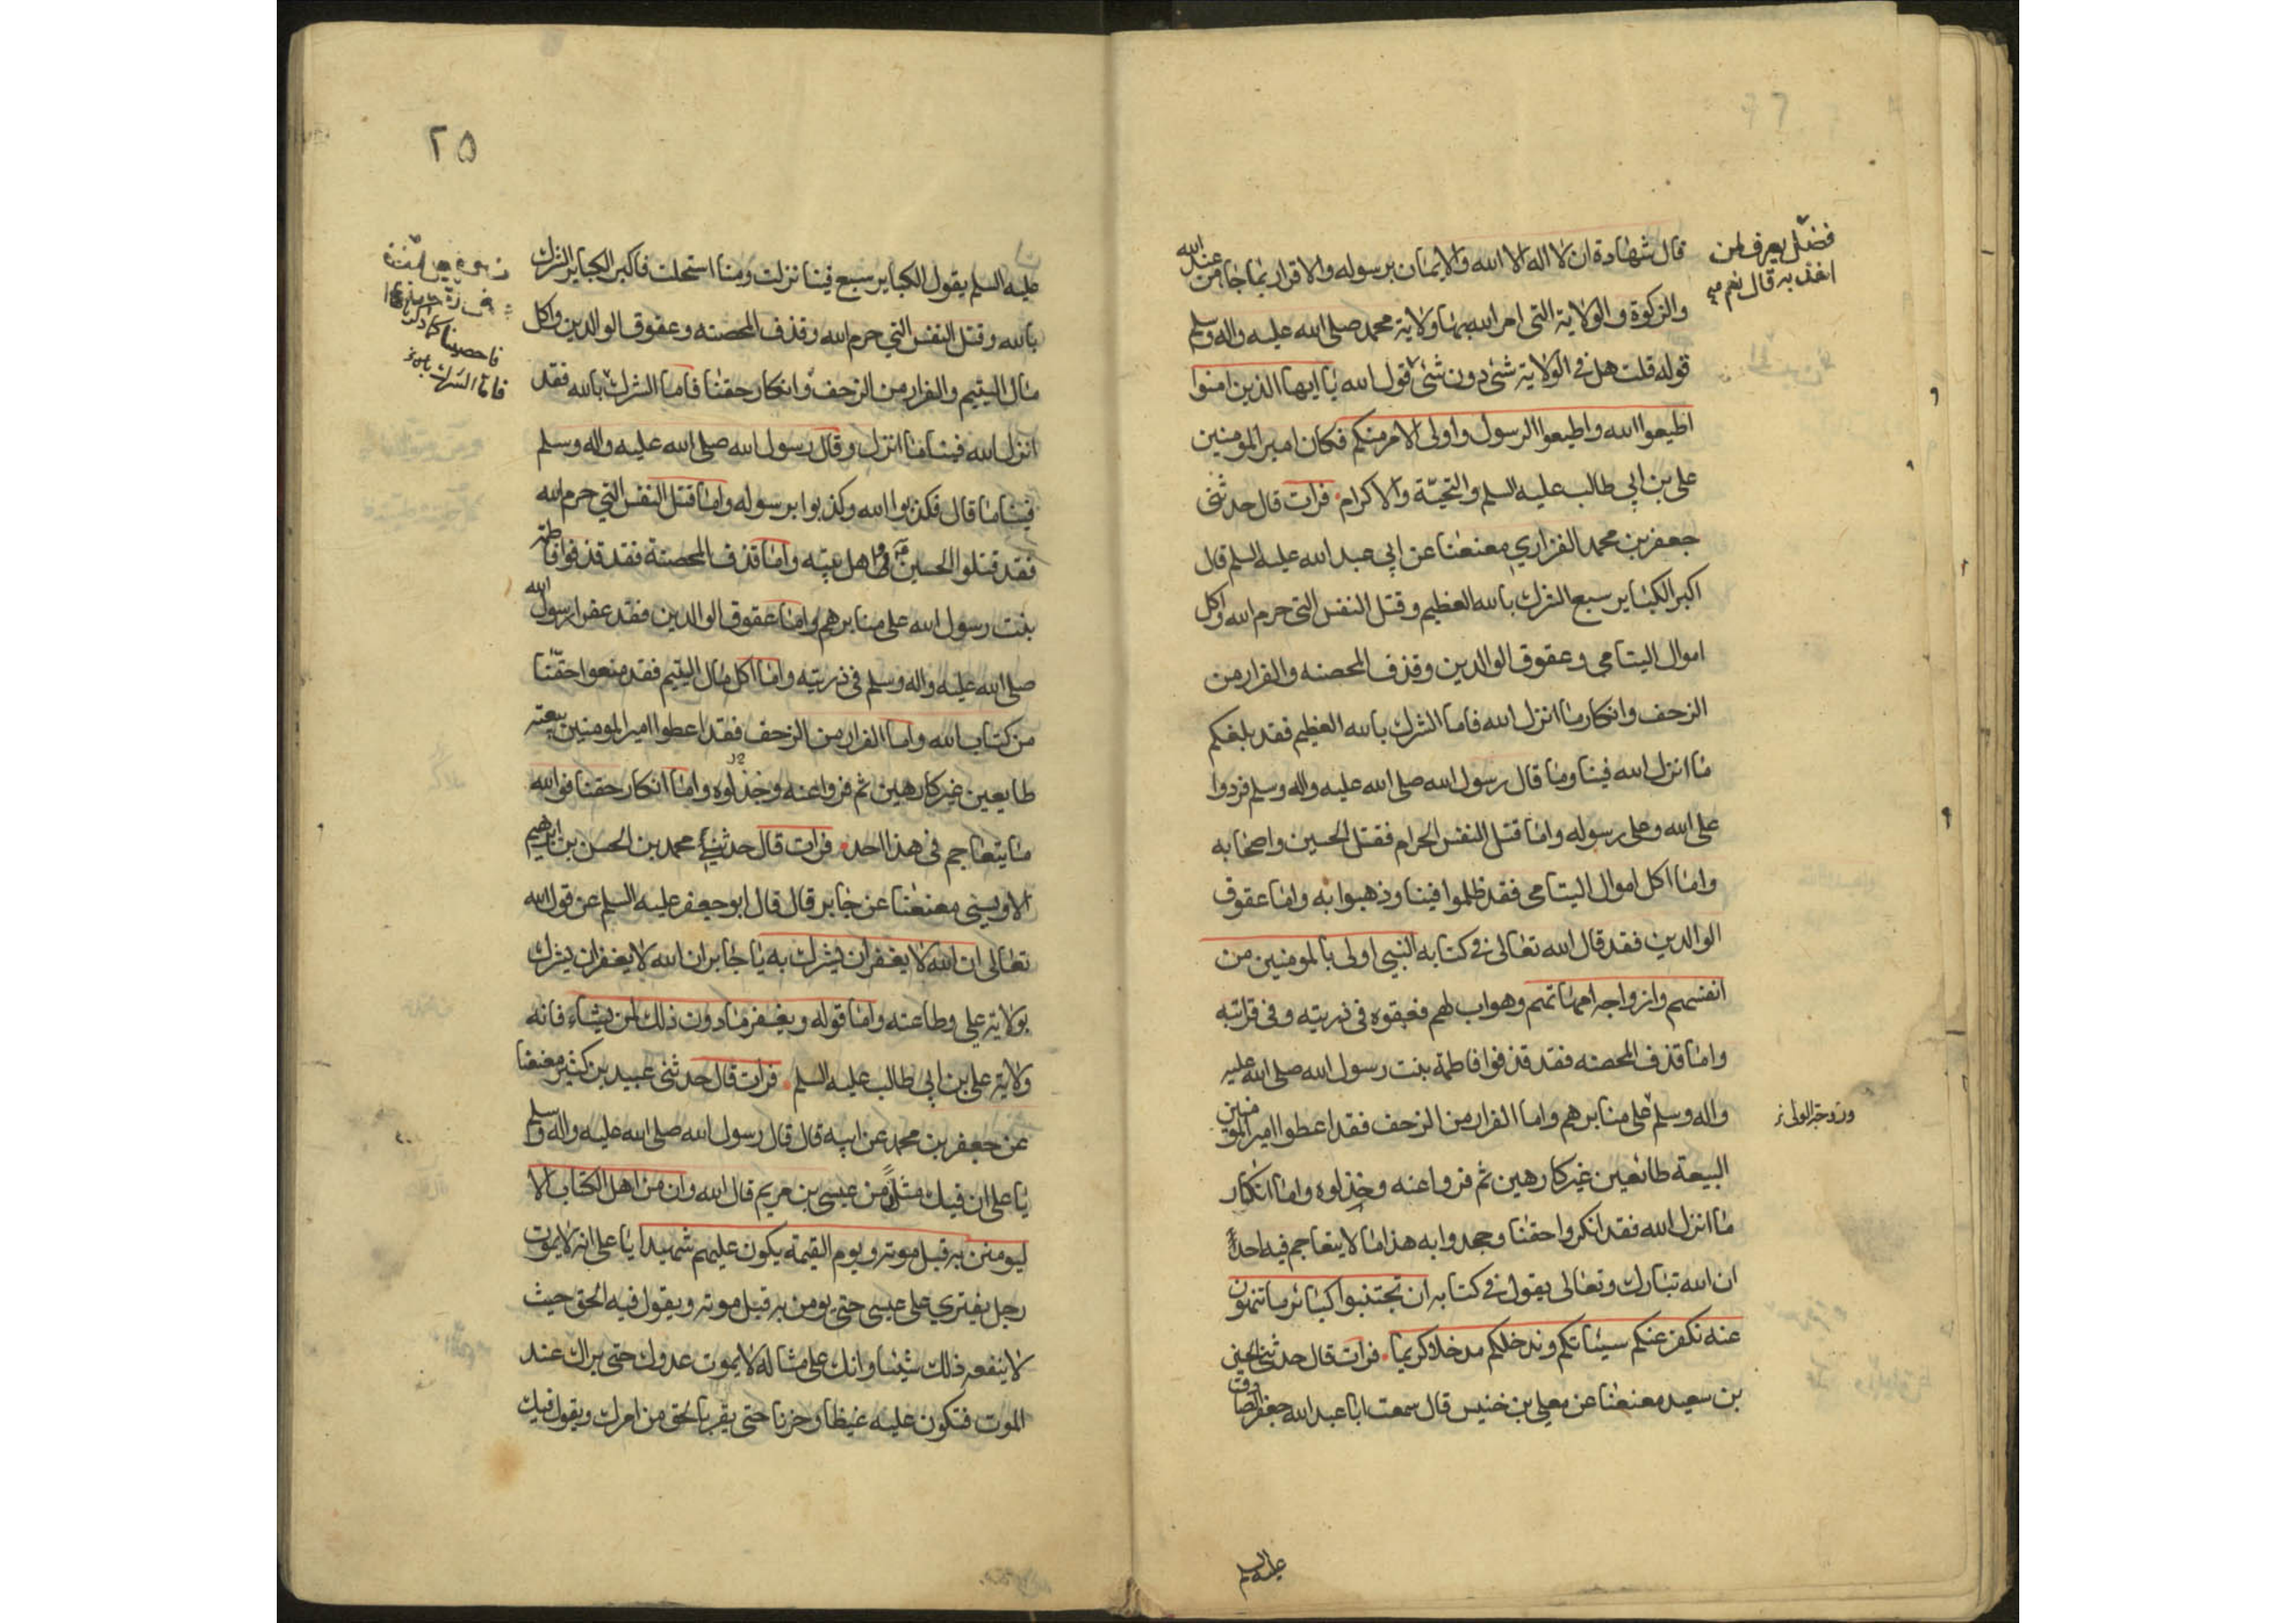 قال شهادة ان لا اله الا الله والايمان برسوله والاقرار بما جا من عند الله
والزكوة والولاية التى امر الله بها ولاية محمد صلى الله عليه واله وسلم
قوله قلت هل فى الولاية شئ دون شئ قول الله يا ايها الذين امنوا
اطيعوا الله واطيعوا الرسول واولى الامر منكم فكان امير المومنين
على بن ابي طالب عليه السلم والتحيّة والاكرام فرات قال حدثنى
جعفر بن محمد الفزاري معنعنا عن ابي عبد الله عليه السلم قال
اكبر الكباير سبع الشرك بالله العظيم وقتل النفس التى حرم الله واكل
اموال اليتامى وعقوق الوالدين وقذف المحصنه والفرار من
الزحف وانكار ما انزل الله فاما الشرك بالله العظيم فقد بلغكم
ما انزل الله فينا وما قال رسول الله صلى الله عليه واله وسلم فردوا
على الله وعلى رسوله واما قتل النفس الحرام فقتل الحسين واصحابه
واما اكل اموال اليتامى فقد ظلموا فينا وذهبوا به واما عقوق
الوالدين فقد قال الله تعالى فى كتابه النبي اولى بالمومنين من
انفسهم وازواجه امهاتهم وهو اب لهم فعقوه فى ذريته وفى قرابته
واما قذف المحصنه فقد قذفوا فاطمة بنت رسول الله صلى الله عليه
واله وسلم على منابرهم واما الفرار من الزحف فقد اعطوا امير المومنين
البيعة طائعين غير كارهين ثم فروا عنه وخذلوه واما انكار
ما انزل الله فقد انكروا حقنا وجحدوا به هذا ما لا يتعاجم فيه احدٌ
ان الله تبارك وتعالى يقول فى كتابه ان تجتنبوا كبائر ما تنهون
عنه نكفر عنكم سيئاتكم وندخلكم مدخلا كريما فرات قال حدثنى الحسين
بن سعيد معنعنا عن معلى بن خنيس قال سمعت ابا عبد الله جعفر الصادق
عليه السلم
فضل يعرف لمن
اخذ به قال نعم
وزوجة الولى
٢٥
عليه السلم يقول الكباير سبع فينا نزلت ومنا استحلت فاكبر الكباير الشرك
بالله وقتل النفس التي حرم الله وقذف المحصنه وعقوق الوالدين واكل
مال اليتيم والفرار من الزحف وانكار حقنا فاما الشرك بالله فقد
انزل الله فينا ما انزل وقال رسول الله صلى الله عليه واله وسلم
فينا ما قال فكذبوا الله وكذبوا برسوله واما قتل النفس التي حرم الله
فقد قتلوا الحسين فى اهل بيته واما قذف المحصنة فقد قذفوا فاطمة
بنت رسول الله على منابرهم واما عقوق الوالدين فقد عقوا رسول الله
صلى الله عليه واله وسلم فى ذريته واما اكل مال اليتيم فقد منعوا حقّنا
من كتاب الله واما الفرار من الزحف فقد اعطوا امير المومنين بيعته
طايعين غير كارهين ثم فروا عنه وخذلوه واما انكار حقنا فوالله
ما يتعاجم فى هذا احد فرات قال حدثني محمد بن الحسن بن ابرهيم
الاويسي معنعنا عن جابر قال قال ابو جعفر عليه السلم عن قول الله
تعالى ان الله لا يغفر ان يشرك به يا جابر ان الله لا يغفر ان يشرك
بولاية على وطاعته واما قوله ويغفر ما دون ذلك لمن يشاء فانه
ولاية على بن ابى طالب عليه السلم فرات قال حدثنى عبيد بن كثير معنعنا
عن جعفر بن محمد عن ابيه قال قال رسول الله صلى الله عليه واله وسلم
يا على ان فيك مثلاً من عيسى بن مريم قال الله وان من اهل الكتاب الا
ليومنن به قبل موته ويوم القيمة يكون عليهم شهيدا يا على انه لا يموت
رجل يفتري على عيسى حتى يومن به قبل موته ويقول فيه الحق حيث
لا ينفعه ذلك شيئا وانك على مثاله لا يموت عدوك حتى يراك عند
الموت فتكون عليه غيظا وحزنا حتى يقر بالحق من امرك ويقول فيك
فاما الشرك بالله